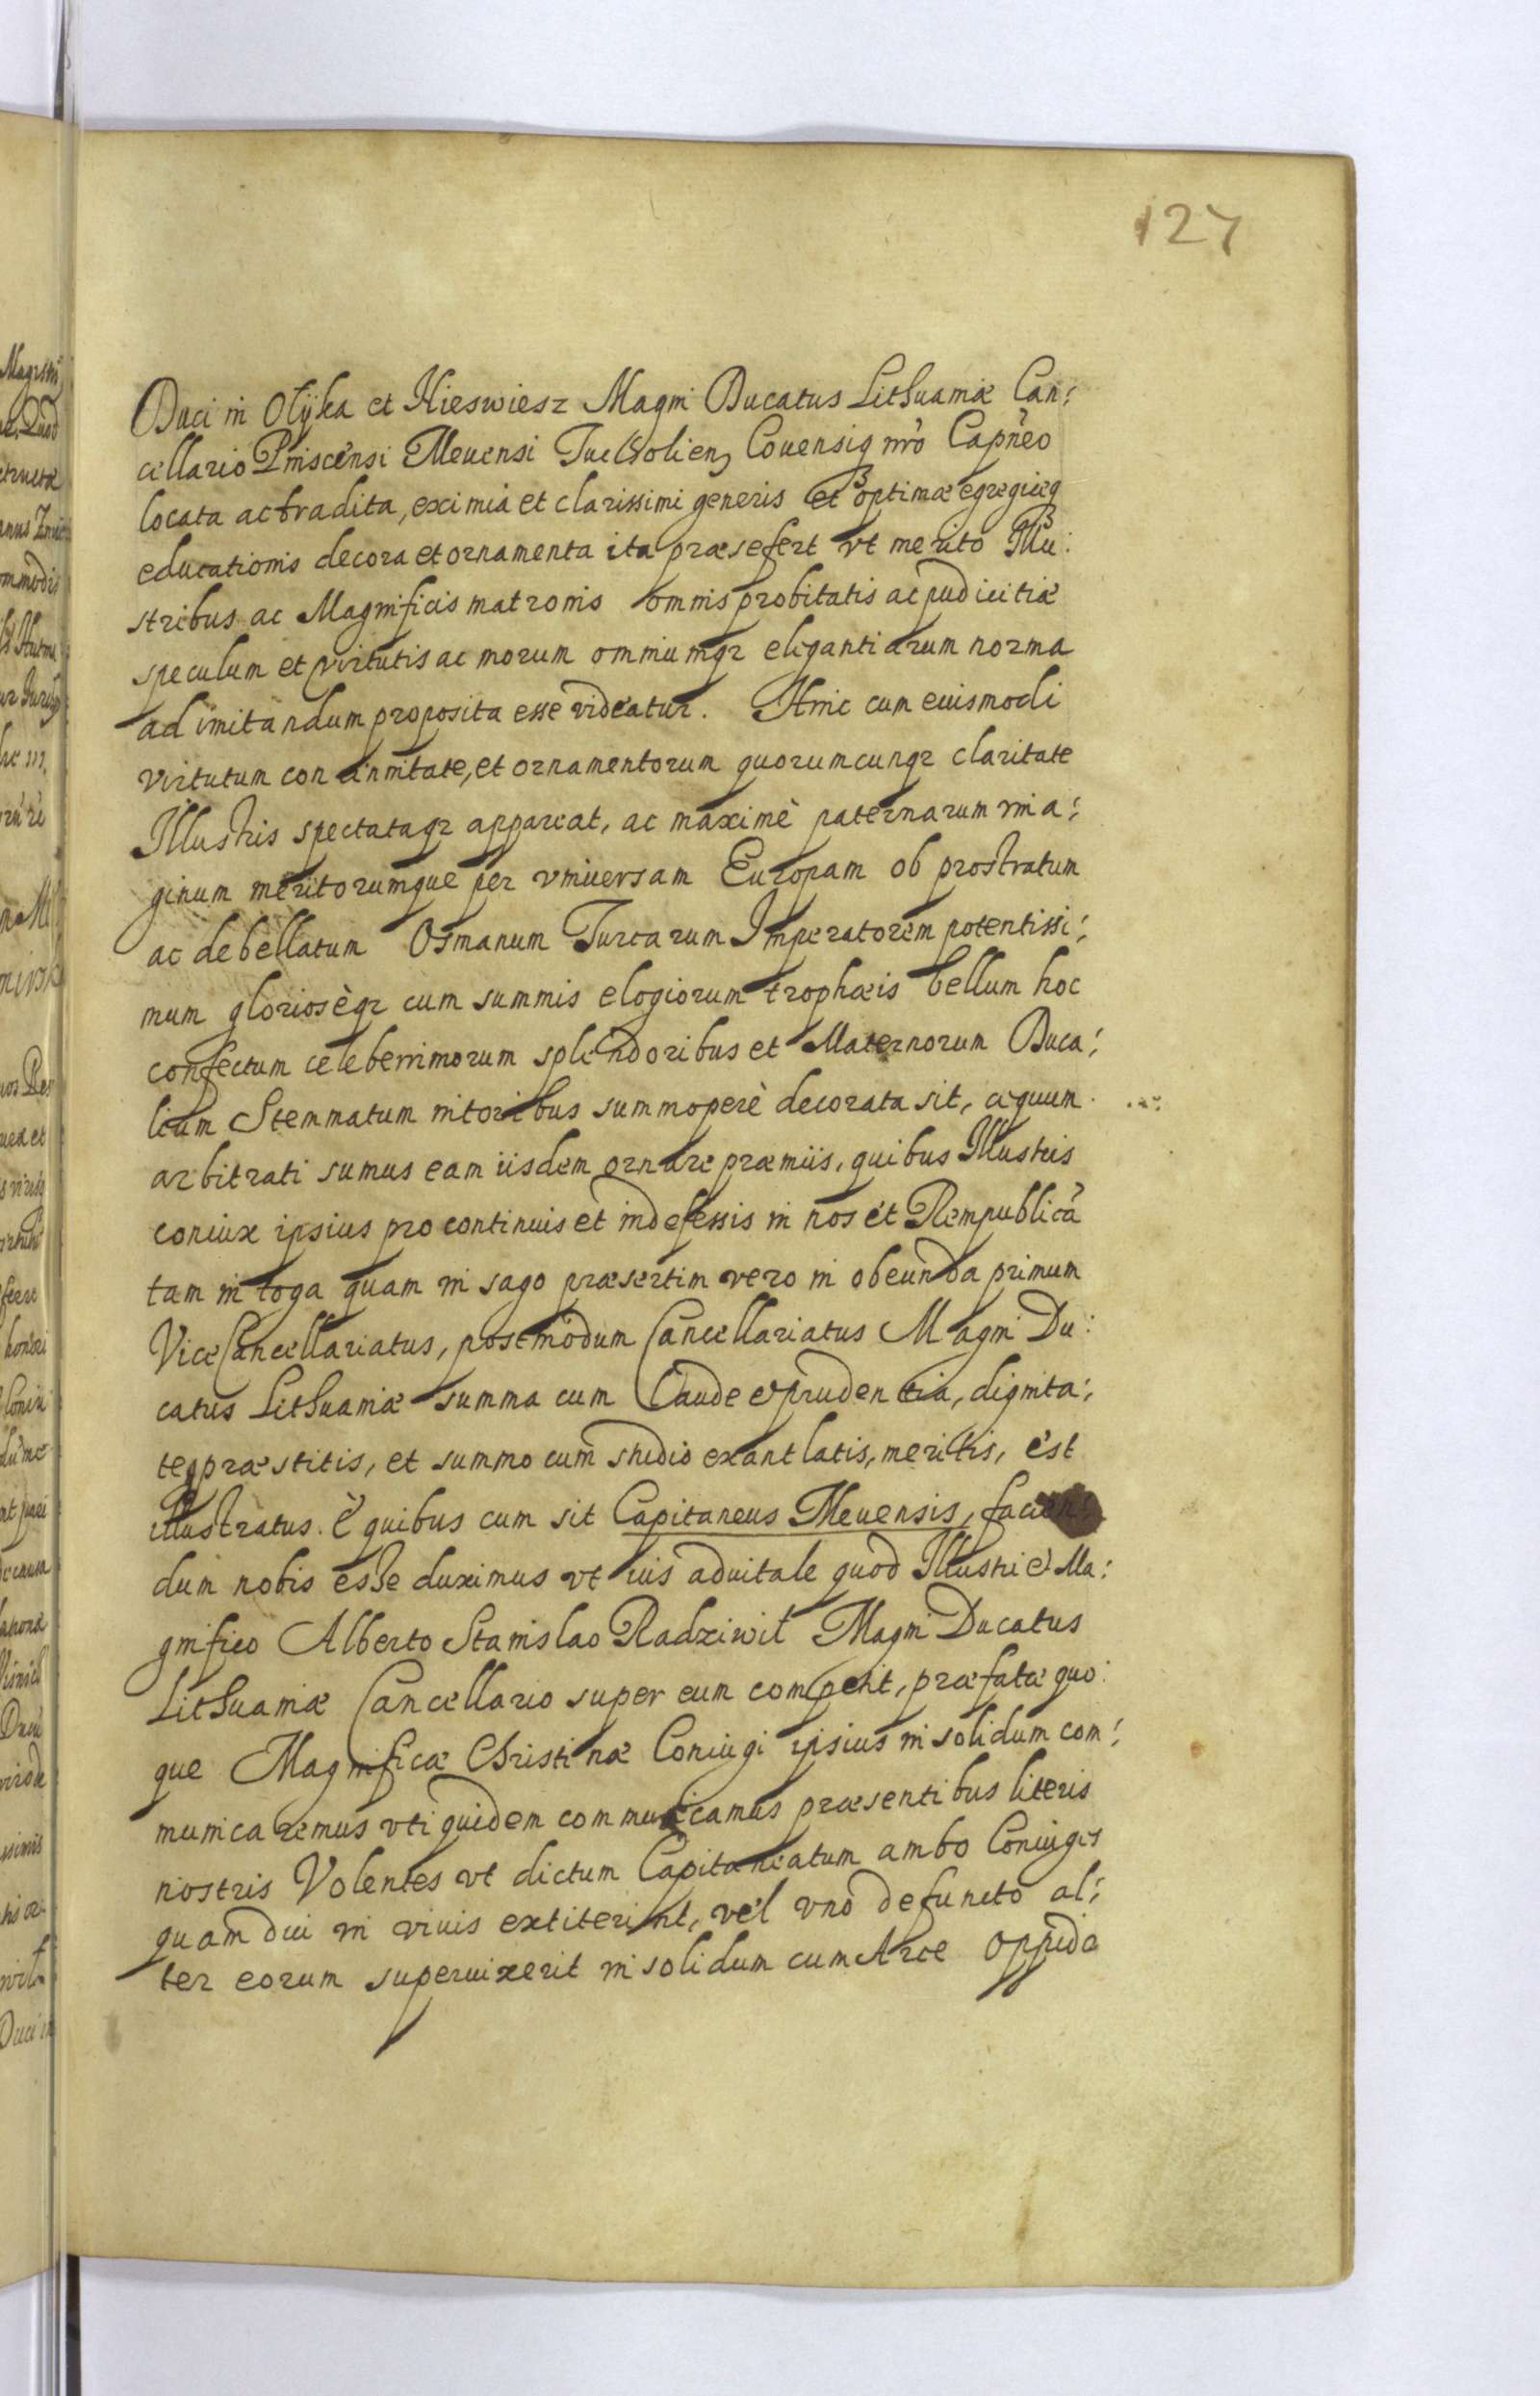 127
Duci in Olyka et Nieswiesz Magni Ducatus Lithuaniæ Can:
cellario Pinscensi Meuensi Tucholien, Couensiq nrõ Capñeo
locata ac tradita, eximia et clarissimi generis et optimæ egregiæq
educationis decora et ornamenta ita præsefert vt merito Illu:
stribus ac Magnificis matronis omnis probitatis ac pudicitiæ
speculum et virtutis ac morum omniumqz eligantiarum norma
ad imitandum proposita esse videatur. Hinc cum eiusmodi
virtutum concinnitate, et ornamentorum quorumcunqz claritate
Illustris spectataqz appareat, ac maximè paternarum ima:
ginum meritorumque per vniuersam Europam ob prostratum
ac debellatum Osmanum Turcarum Imperatorem potentissi:
mum gloriosèqz cum summis elogiorum trophæis bellum hoc
confectum celeberrimorum splendoribus et Maternorum Duca:
lium Stemmatum nitoribus summoperè decorata sit, æquum
arbitrati sumus eam iisdem ornare præmiis, quibus Illustris
coniux ipsius pro continuis et indefessis in nos et Rempublicã
tam in toga quam in sago præsertim vero in obeunda primum
ViceCancellariatus, postmodum Cancellariatus Magni Du:
catus Lithuaniæ summa cum laude & prudentia, dignita:
teq præstitis, et summo cum studio exantlatis, meritis, est
illustratus. è quibus cum sit Capitaneus Meuensis, facien:
dum nobis esse duximus vt ius aduitale quod Illustri & Ma:
gnifico Alberto Stanislao Radziwil Magni Ducatus
Lithuaniæ Cancellario super eum competit, præfatæ quo:
que Magnificæ Christinæ Coniugi ipsius in solidum com:
municaremus vti quidem communicamus præsentibus literis
nostris Volentes vt dictum Capitaneatum ambo Coniuges
quamdiu in viuis extiterint, vel vno defuncto al:
ter eorum superuixerit in solidum cum Arce Oppido